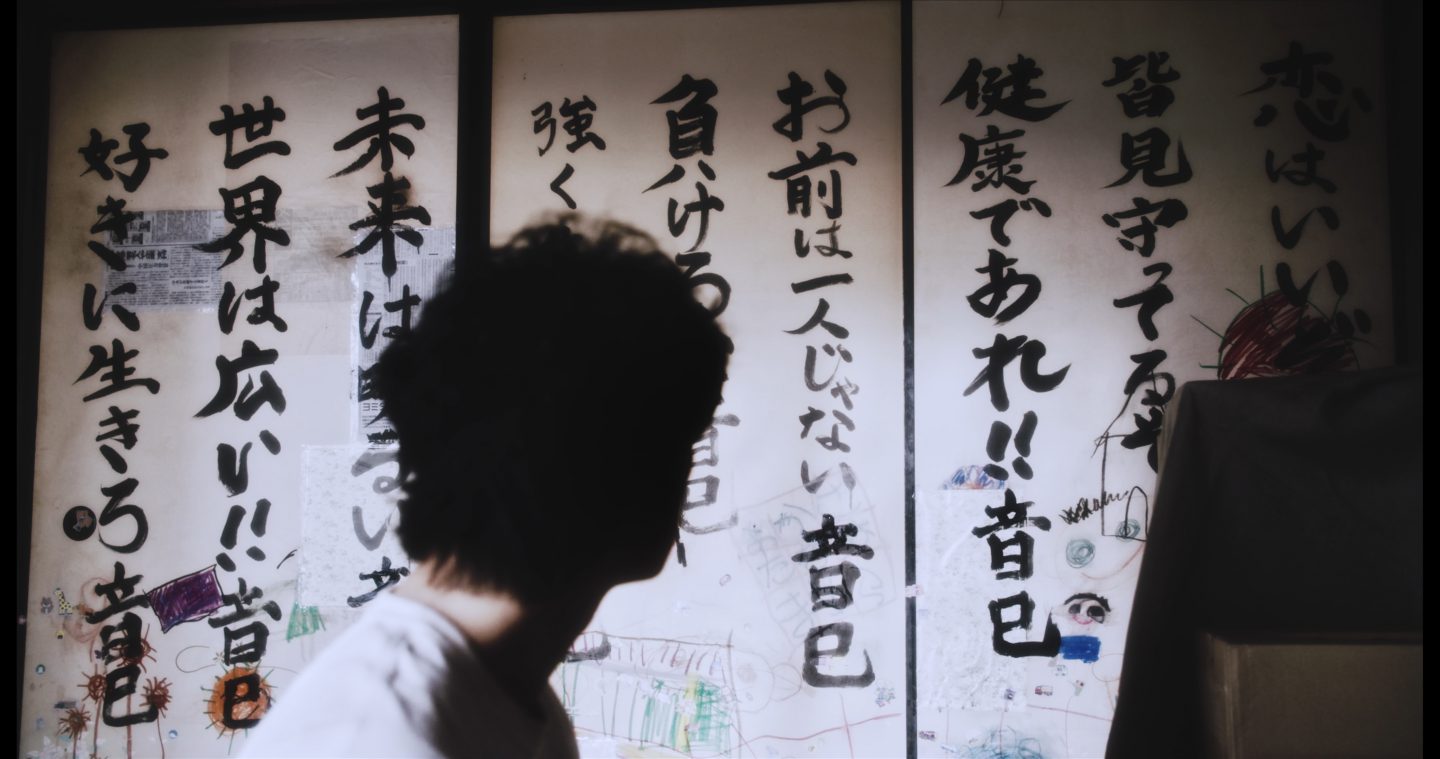 恋はいいぞ
皆見守ってる
健康であれ!!音巳
お前は一人じゃない 音巳
負ける 音巳
強く
未来は明るい 音
世界は広い!!音巳
好きに生きろ 音巳